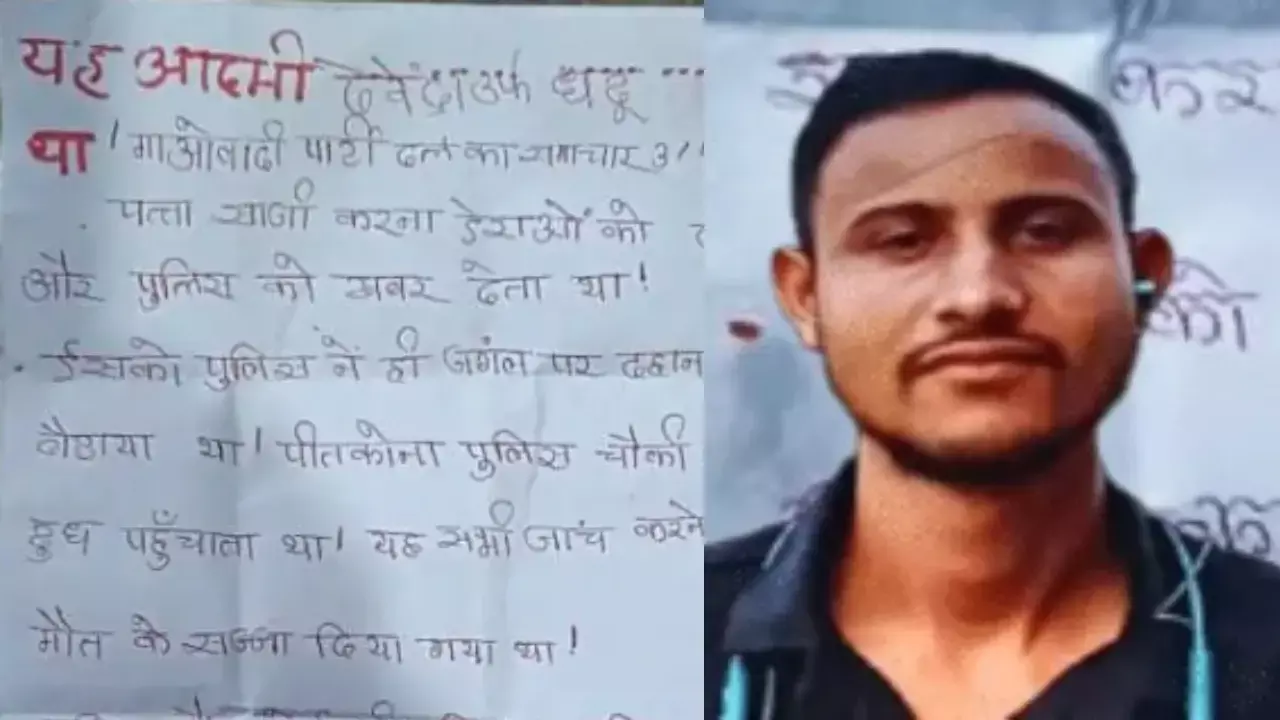 यह आदमी देवेंद्र उर्फ धदू
था! माओवादी पार्टी दल का समाचार
पत्ता साजी करना डेराओं को
और पुलिस को खबर देता था!
ईसको पुलिस नें ही जगंल पर दहान
बैठाया था! पीतकोना पुलिस चौकी
दुध पहुँचाता था! यह सभी जांच करने
मौत के सज्जा दिया गया था!
कर
को